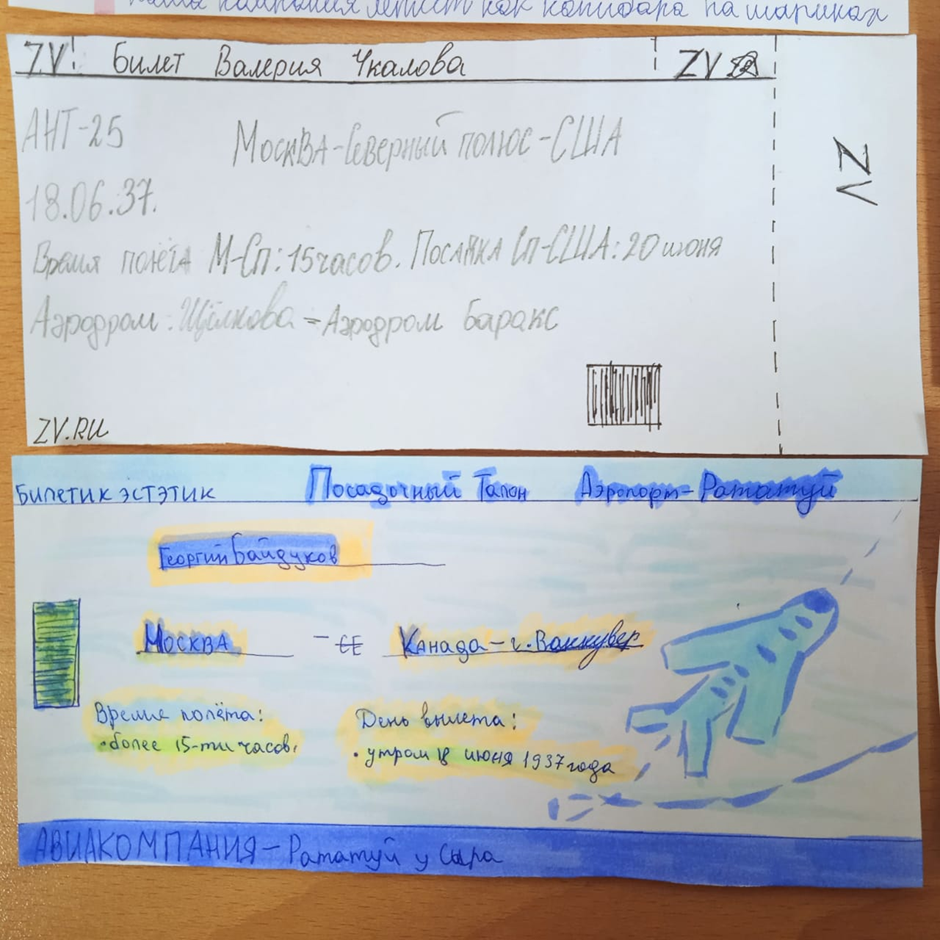 Наша компания летит как капибара на шариках
ZV Билет Валерия Чкалова ZV
АНТ-25 Москва-Северный полюс-США
ZV
18.06.37.
Время полёта М-Сп: 15 часов. Посадка Сп-США: 20 июня
Аэродром: Щёлкова - Аэродром Баракс
ZV.RU
Билетик эстэтик Посадочный Талон Аэропорт-Рататуй
Георгий Байдуков
Москва - Канада-г. Ванкувер
Время полёта: День вылета:
•более 15-ти часов. • утром 18 июня 1937 года
АВИАКОМПАНИЯ-Рататуй у Сыра